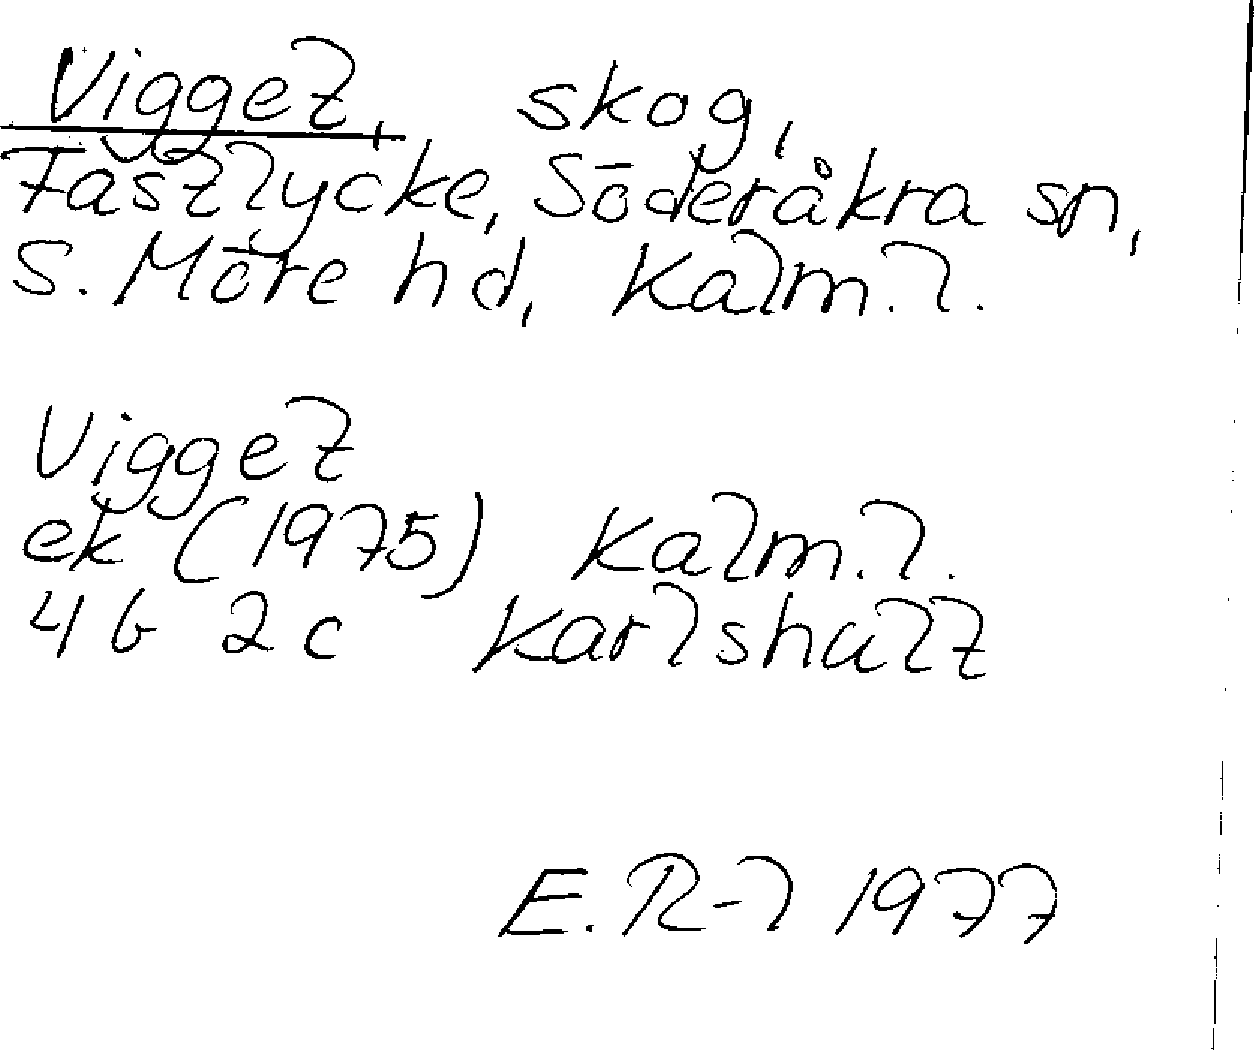 Vigget, skog,
Fästlycke, Söderåkra sn,
S. Möre hd, Kalm. l.
Vigget
ek (1975) Kalm. l.
4G 2c Karlshult
E. R-l 1977